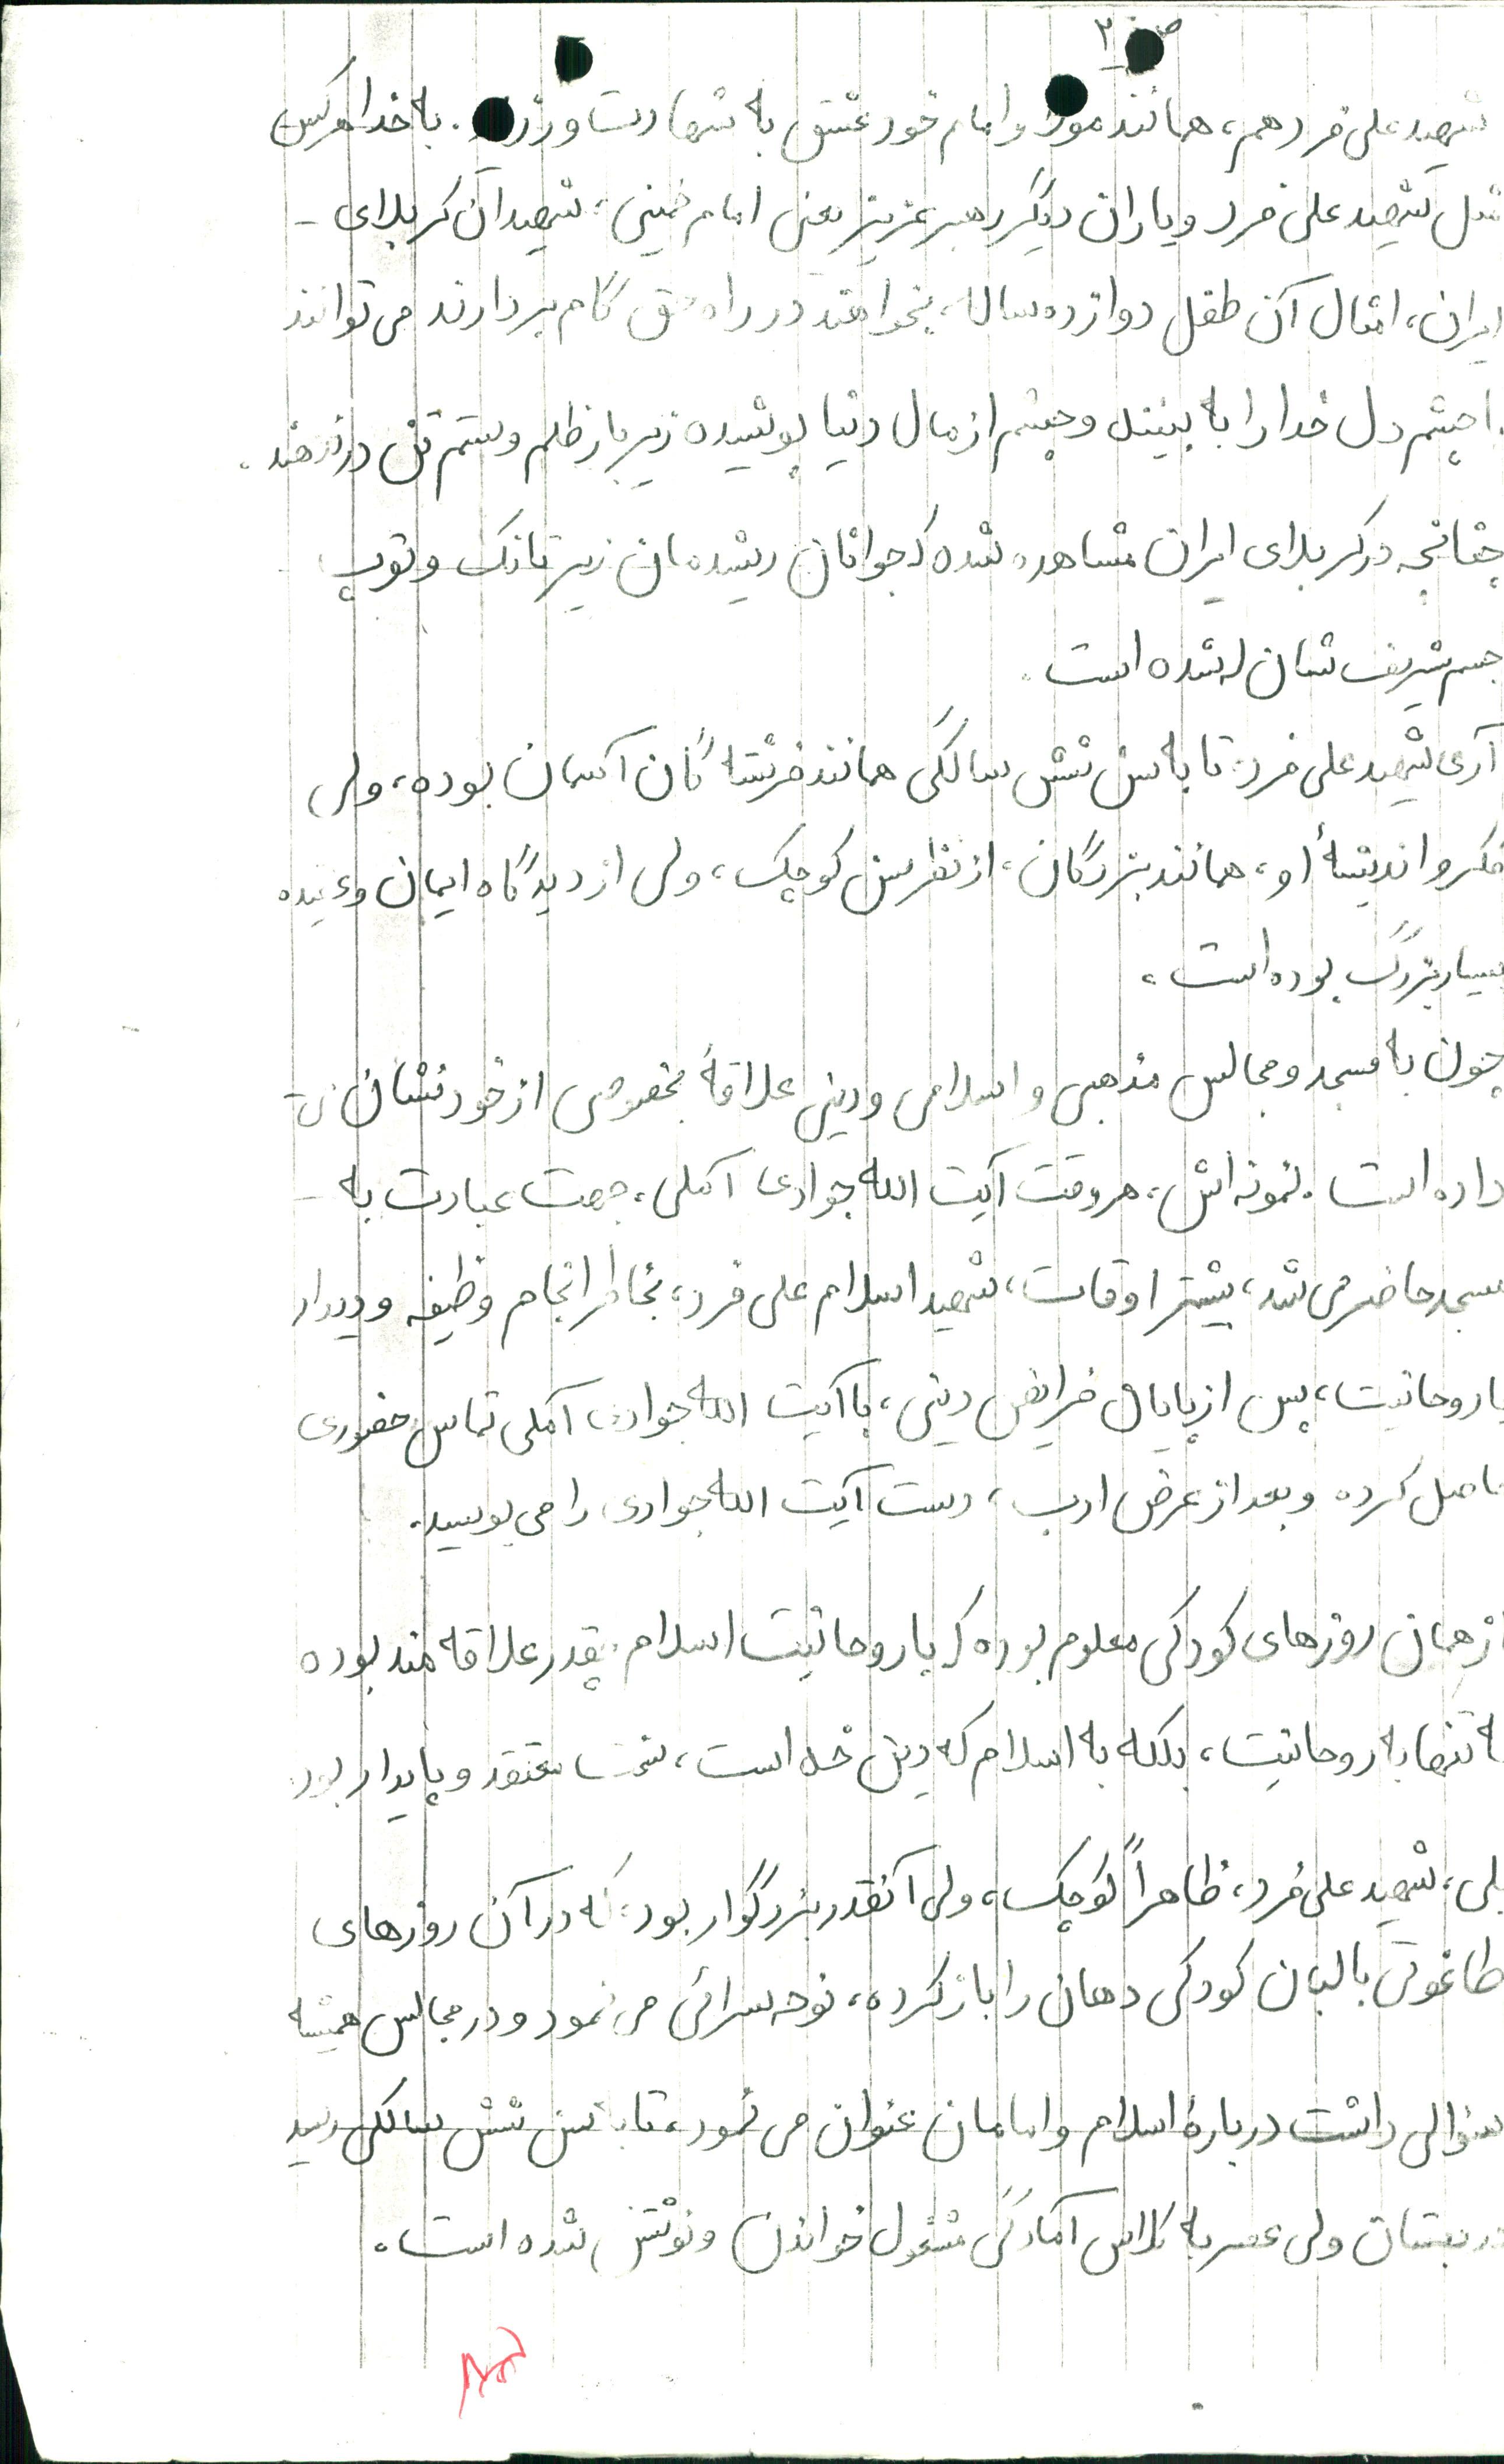 ص ۲
شهید علی فرد هم، همانند مولا و امام خود عشق به شهادت ورزید. به خدا هرکس
مثل شهید علی فرد و یاران دیگر رهبر عزیز یعنی امام خمینی، شهیدان کربلای -
ایران، امثال آن طفل دوازده ساله، بخواهند در راه حق گام بردارند می توانند
با چشم دل خدا را به بینند و چشم از مال دنیا پوشیده زیر بار ظلم و ستم تن در ندهند.
چنانچه در کربلای ایران مشاهده شده که جوانان رشیدمان زیر تانک و توپ
جسم شریف شان له شده است.
آری شهید علی فرد تا به سن شش سالگی همانند فرشته گان آسمان بوده، ولی
فکر و اندیشۀ او، همانند بزرگان، از نظر سن کوچک، ولی از دیدگاه ایمان و عقیده
بسیار بزرگ بوده است.
چون به مسجد و مجالس مذهبی و اسلامی و دینی علاقۀ مخصوصی از خود نشان
داده است. نمونه اش، هر وقت آیت الله جوادی آملی، جهت عبادت به -
مسجد حاضر می شد، بیشتر اوقات، شهید اسلام علی فرد، بخاطر انجام وظیفه و دیدار
با روحانیت، پس از پایان فرایض دینی، با آیت الله جوادی آملی تماس حضوری
حاصل کرده و بعد از عرض ادب، دست آیت الله جوادی را می بوسید.
از همان روزهای کودکی معلوم بوده که با روحانیت اسلام چقدر علاقه مند بوده
نه تنها به روحانیت، بلکه به اسلام که دین خدا است، سخت معتقد و پایدار بود
بلی، شهید علی فرد، ظاهراً کوچک، ولی آنقدر بزرگوار بود، که در آن روزهای
طاغوتی با لبان کودکی دهان را باز کرده، نوحه سرائی می نمود و در مجالس همیشه
سئوالی داشت درباره اسلام و امامان عنوان می نمود، تا به سن شش سالگی رسید
در بستان ولی عصر به کلاس آمادگی مشغول خواندن و نوشتن شده است.